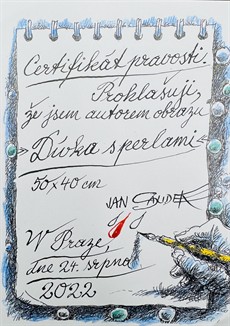 Certifikát pravosti.
Prohlašuji,
že jsem autorem obrazu
»Dívka s perlami«
50×40 cm
JAN GAUDEK
V Praze,
dne 24. srpna
2022